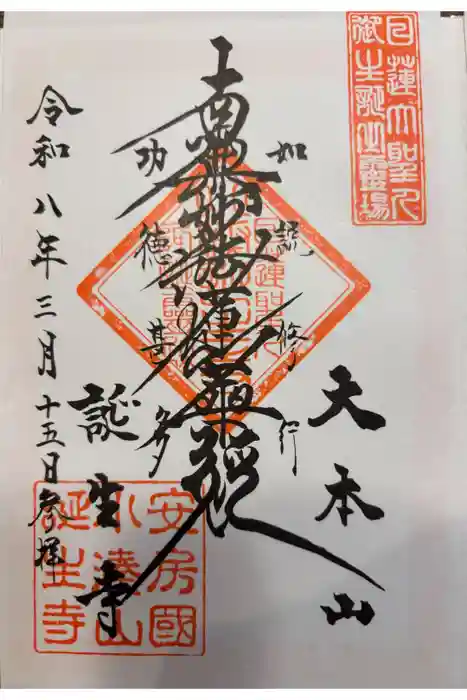 日蓮大聖人
御生誕之靈場
大本山
如説修行
南無妙法蓮華経
功徳甚多
誕生寺
令和八年三月十五日参拝
安房國
小湊山
誕生寺